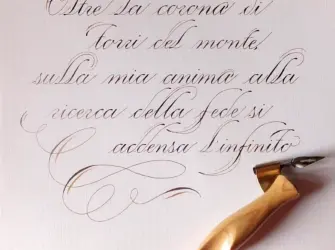 Oltre la corona di
torri del monte,
sulla mia anima alla
ricerca della fede si
accensa l'infinito